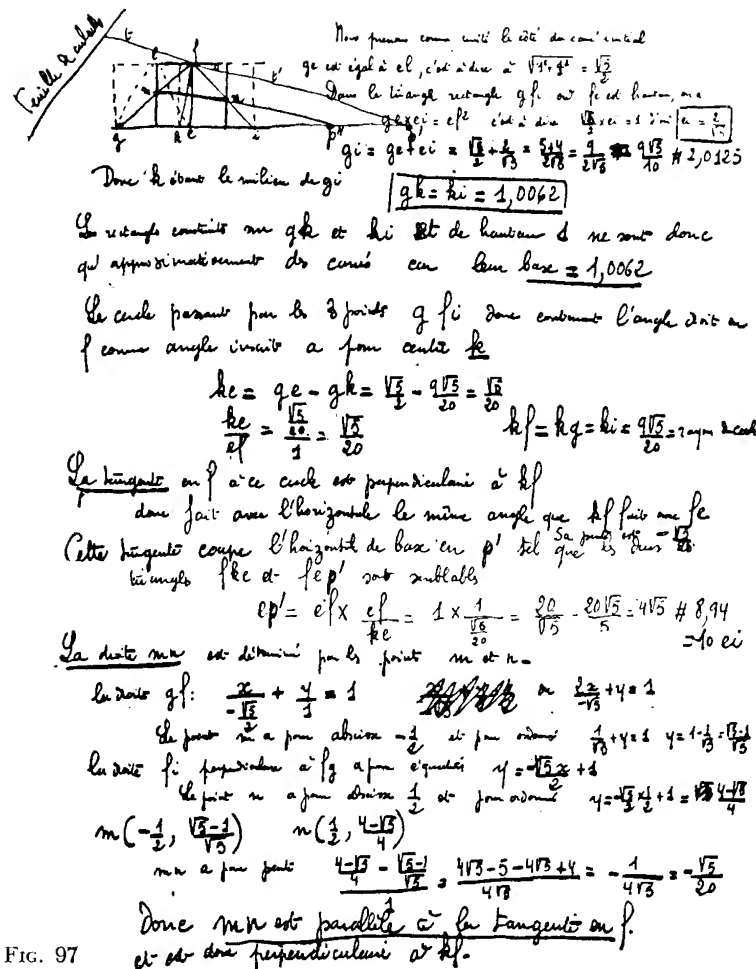 Feuille de calculs
Nous prenons comme unité le côté du carré initial
ge est égal à el, c'est à dire à √(1²+½²) = √5/2
Dans le triangle rectangle gfi où fe est hauteur, on a
ge × ei = ef² c'est à dire √5/2 × ei = 1 d'où ei = 2/√5
gi = ge + ei = √5/2 + 2/√5 = (5+4)/2√5 = 9/2√5 = 9√5/10 # 2,0125
Donc k étant le milieu de gi gk = ki = 1,0062
Les rectangles construits sur gk et ki et de hauteur 1 ne sont donc
qu'approximativement des carrés car leur base = 1,0062
Le cercle passant par les 3 points g f i donc contenant l'angle droit en
f comme angle inscrit a pour centre k
ke = ge - gk = √5/2 - 9√5/20 = √5/20
ke/ef = (√5/20)/1 = √5/20 kf = kg = ki = 9√5/20 = rayon du cercle
La tangente en f à ce cercle est perpendiculaire à kf
donc fait avec l'horizontale le même angle que kf fait avec fe
Sa pente est = -√5/20
Cette tangente coupe l'horizontale de base en p' tel que les deux
triangles fke et fep' sont semblables
ep' = ef × ef/ke = 1 × 1/(√5/20) = 20/√5 = 20√5/5 = 4√5 # 8,94
= 10 ei
La droite mn est déterminée par les points m et n.
la droite gf: x/(-√5/2) + y/1 = 1 ou 2x/-√5 + y = 1
Le point m a pour abscisse -1/2 et pour ordonnée 1/√5 + y = 1 y = 1 - 1/√5 = (√5-1)/√5
la droite fi perpendiculaire à fg a pour équation y = -√5x/2 + 1
Le point n a pour abscisse 1/2 et pour ordonnée y = -√5/2 × 1/2 + 1 = (4-√5)/4
m(-1/2, (√5-1)/√5) n(1/2, (4-√5)/4)
mn a pour pente ((4-√5)/4 - (√5-1)/√5)/1 = (4√5 - 5 - 4√5 + 4)/4√5 = -1/4√5 = -√5/20
Donc mn est parallèle à la tangente en f.
et est donc perpendiculaire à kf.
FIG. 97